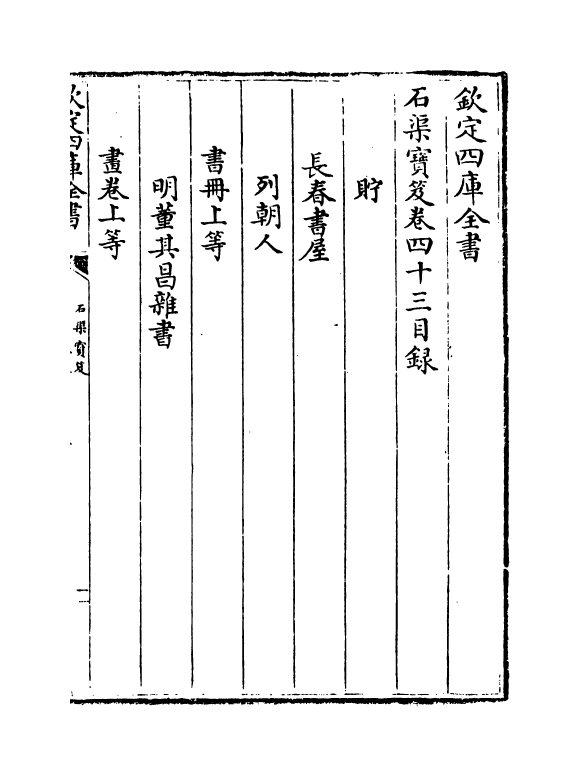 欽定四庫全書
石渠寶笈卷四十三目録
貯
長春書屋
列朝人
書冊上等
明董其昌雜書
畫卷上等
欽定四庫全書
石渠寶笈
一